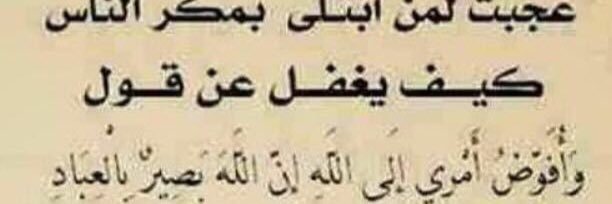 عجبت لمن ابتلى بمكر الناس
كيف يغفل عن قول
وَأُفَوِّضُ أَمْرِي إِلَى اللَّهِ إِنَّ اللَّهَ بَصِيرٌ بِالْعِبَادِ